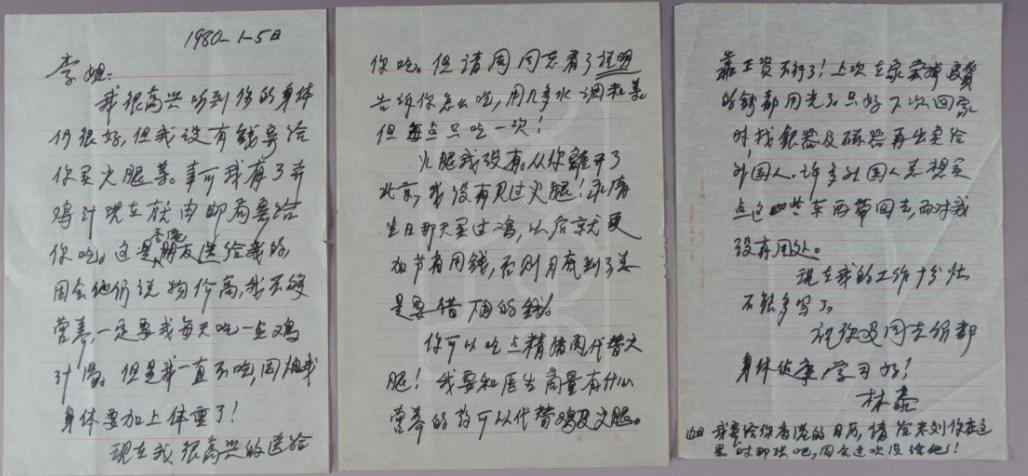 1980-1-5日
李姐：
我很高兴听到你的身体
仍很好，但我没有钱寄给
你买火腿等。幸而我有了
鸡汁现在在邮局寄给
你吃。这是香港朋友送给我的，
因会他们说物价高，我不够
营养，一定要我每天吃一点鸡
汁汤。但是我一直不吃，因怕我
身体要加上体重了！
现在我很高兴的送给
你吃。但请周同志看了说明
告诉你怎么吃，用几多水调和等。
但每点只吃一次！
火腿我没有。从你离开了
北京，我没有见过火腿！
生日那天买过鸡，以后就更
加节省用钱，否则月底到了总
是要借用的钱。
你可以吃点精猪肉代替火
腿！我要和医生商量有什么
营养的药可以代替鸡及火腿。
靠工资不行了！上次在家卖掉
的钱都用光了只好下次回家
时找银器及磁器再出卖给
外国人。许多外国人总想买
点这些东西带回去，而对我
没有用处。
现在我的工作十分忙
不能多写了。
祝你及同志们都
身体健康，学习好！
林
我要给你香港的日历，请给
里时那张吧，因会这次没给他！